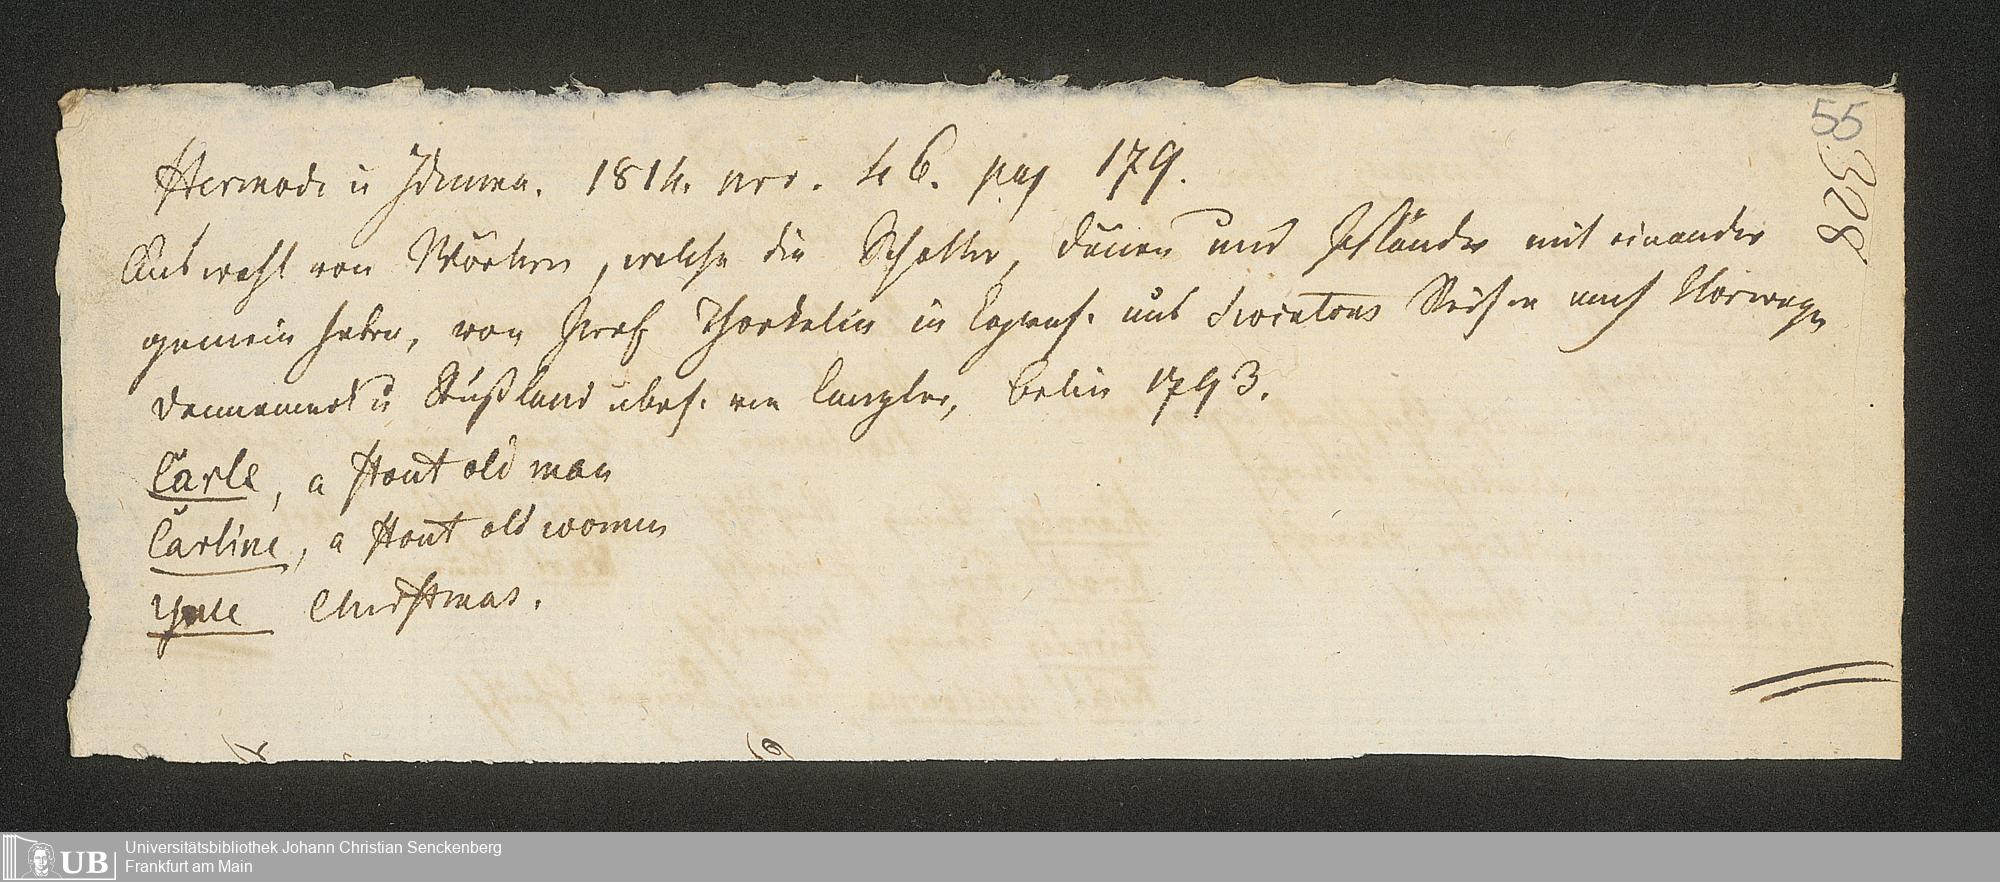 55
328
Hermode u Idunna. 1814. nro. 46. pag 179.
Auswahl von Wörtern, welche die Schotten, Dänen und Isländer mit einander
gemein haben, von Prof Thorkelin in Copenh. aus Swintons Reisen nach Norwegen
Dannemark u Rußland übers. von Canzler, Berlin 1793.
Carle, a stout old man
Carline, a stout old women
Yule Christmas.
UB Universitätsbibliothek Johann Christian Senckenberg
Frankfurt am Main